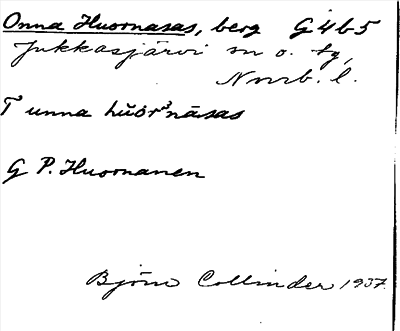 Onna Huornasas, berg G4b5
Jukkasjärvi sn o. tg,
Norrb. l.
T unna hŭŏr³nāsas
G P. Huornanen
Björn Collinder 1937.